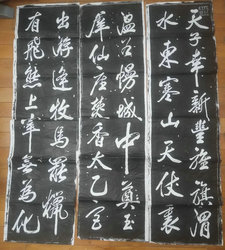 天子幸新豐旌旗渭
水東寒山天仗裏
温谷幔城中奠玉
羣仙座焚香太乙宫
出游逢牧馬罷獵
有飛熊上宰無為化